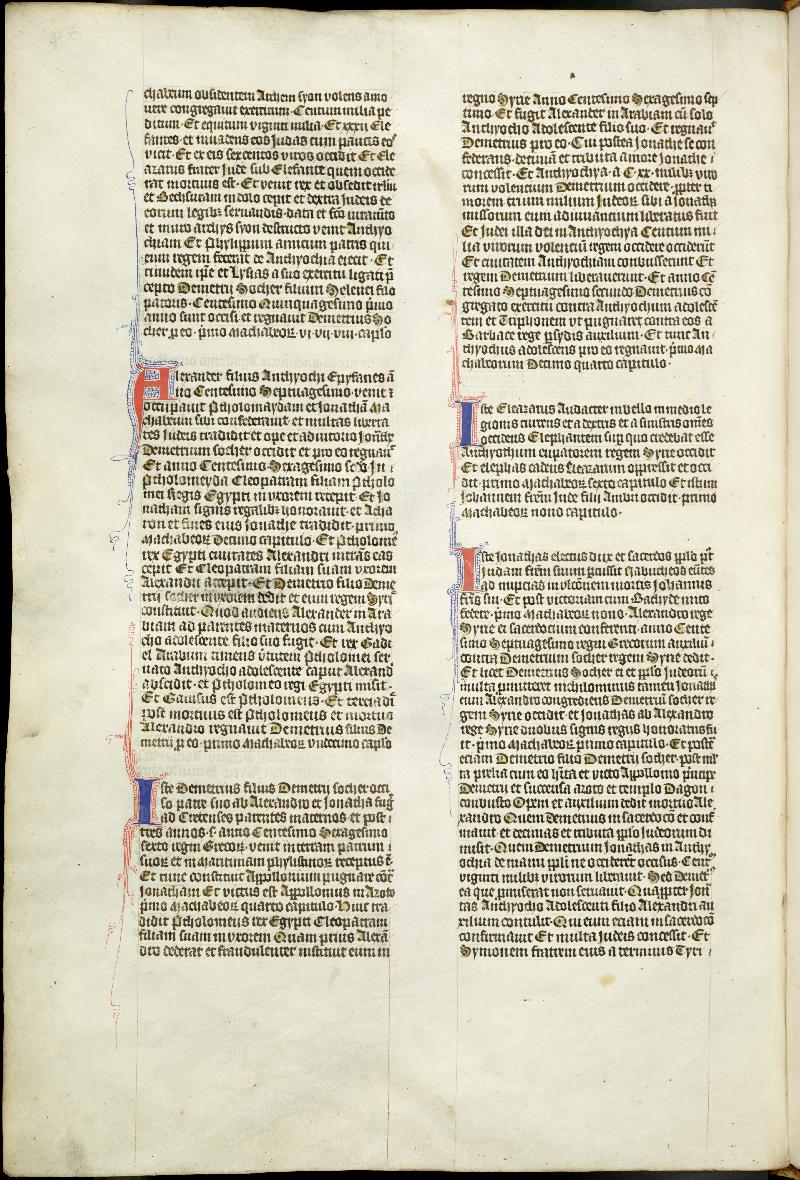 chabeum obsidentem Archem syon volens amo
uere congregauit exercitum · Centum milia pe
ditum · Et equitum viginti milia · Et xxxii Ele
fantes · et inuadens eos Judas cum paucis eos
vicit · Et ex eis sexcentos viros occidit Et Ele
azarus frater Jude sub Elefante quem occide
rat mortuus est · Et venit rex et obsedit
et Bethsuram in dolo cepit et dextra Judeis de
eorum legibus seruandis data et facto iuramento
et muro archys syon destructo venit Anthyo
chiam Et Phylippum amicum patris qui
eum regem fecerat de Anthyochia eiecit · Et
tandem ipse et Lysias a suo exercitu ligati p
cepto Demetry Sother filium Heleuci filio
patoris · Centesimo Quinquagesimo primo
anno sunt occisi et regnauit Demetrius So
ther p eo · primo Machabeorum · vi · vii · viii · capitulo
Alexander filius Anthyochi Epyfanes a
no Centesimo Septuagesimo · venit et
occupauit Ptholomaydam et Jonatham Ma
chabeum sibi confederauit · et multas liberta
tes Judeis tradidit et ope et adiutorio Jonathe
Demetrium sother occidit et pro eo regnauit
Et anno Centesimo Sexagesimo sexto In
Ptholomeyda Cleopatram filiam Ptholo
mei Regis Egypti in vxorem recepit · Et Jo
natham signis regalibus honorauit · et Acha
ron et fines eius Jonathe tradidit · primo
Machabeorum Decimo capitulo · Et Ptholomeus
rex Egypti ciuitates Alexandri intrans eas
cepit Et Cleopatram filiam suam vxorem
Alexandri accepit · Et Demetrio filio Deme
try sother in vxorem dedit et eum regem Syri
constituit · Quod audiens Alexander in Ara
biam ad parentes maternos cum Anthyo
cho adolescente filio suo fugit · Et rex Gadi
el Arabum timens virtutem Ptholomei ser
uato Anthyocho adolescente caput Alexand
abscidit · et Ptholomeo regi Egypti misit ·
Et Gauisus est Ptholomeus · Et tercia di
post mortuus est Ptholomeus et mortuo
Alexandro regnauit Demetrius filius De
metry p eo · primo Machabeorum vndecimo capitulo
Iste Demetrius filius Demetry sother occi
so patre suo ab Alexandro et Jonatha fugit
ad Cretenses parentes maternos · et post
tres annos · s · anno Centesimo Sexagesimo
sexto regni Grecorum · venit in terram patrum
suorum et in Maritimam phylistinorum receptus est
Et tunc constituit Appollonium pugnare contra
Jonatham Et victus est Appollonius in Azoto
primo Machabeorum quarto capitulo · Huic tra
didit Ptholomeus rex Egypti Cleopatram
filiam suam in vxorem Quam prius Alexan
dro dederat et fraudulenter instituit eum in
regno Syrie Anno Centesimo Sexagesimo sep
timo · Et fugit Alexander in Arabiam cum solo
Anthyocho Adolescente filio suo · Et regnauit
Demetrius pro eo · Cui postea Jonathe se con
federans · decimam et tributa amore Jonathe
concessit · Et Anthyochya · a C · xx · milibus viro
rum volentium Demetrium occidere · propter ti
morem trium milium Judeorum sibi a Jonatha
missorum eum adiuuantium liberatus fuit
Et Judei illa die in Anthyochya Centum mi
lia virorum volentium regem occidere occiderunt
Et ciuitatem Anthyochiam combusserunt Et
regem Demetrium liberauerunt · Et anno Cen
tesimo Septuagesimo secundo Demetrius con
gregato exercitu contra Anthyochum adolescen
tem et Triphonem vt pugnaret contra eos a
Sarbace rege psydis auxilium · Et tunc An
thyochus adolescens pro eo regnauit · primo Ma
chabeorum Decimo quarto capitulo ·
Iste Eleazarus Audacter in bello in medio le
gionis currens et a dextris et a sinistris omnes
occidens Elephantem super quo credebat esse
Anthyochum eupatorem regem Syrie occidit
Et elephas cadens Eleazarum oppressit et occi
dit · primo Machabeorum sexto capitulo · Et istum
Johannem fratrem Jude filii Ambri occidit · primo
Machabeorum nono capitulo ·
Iste Jonathas electus dux et sacerdos populo post
Judam fratrem suum percussit Nabutheos euntes
ad nupcias in vlcionem mortis Johannis
fratris sui · Et post victoriam cum Bachyde inito
federe · primo Machabeorum nono · Alexandro rege
Syrie ei sacerdocium conferenti · anno Cente
simo Septuagesimo regni Grecorum auxilium
contra Demetrium sother regem Syrie dedit ·
Et licet Demetrius Sother ei et populo Judeorum
multa promitteret nichilominus tamen Jonathas
cum Alexandro congrediens Demetrium sother re
gem Syrie occidit et Jonathas ab Alexandro
rege Syrie duobus signis regiis honoratus fu
it · primo Machabeorum primo capitulo · Et postea
eciam Demetrio filio Demetry sother · post mul
ta prelia cum eo habita et victo Appollonio principe
Demetry et succensa azoto et templo Dagon
combusto Opem et auxilium dedit mortuo Ale
xandro Quem Demetrius in sacerdocio et conf
mauit et decimas et tributa populo Judeorum di
misit · Quem Demetrium Jonathas in Anthy
ochia de manu populi ne occideret occisus · Centum
viginti milibus virorum liberauit · Sed Demetrius
ea que promiserat non seruauit · Quapropter Jona
tas Anthyocho Adolescenti filio Alexandri au
xilium contulit · Qui eum eciam in sacerdocio
confirmauit Et multa Judeis concessit · Et
Symonem fratrem eius a terminis Tyri